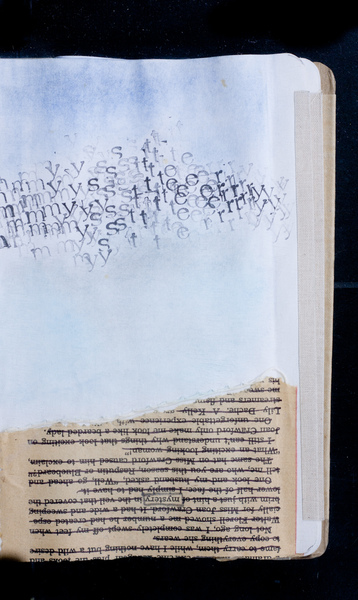 mmmyyyssstttteeeerrrryyy
to copy everything she wears.
Not long ago, I was completely swept off my feet when
Walter Florell showed me a number he had created espe-
cially for Miss Joan Crawford. It had a wide and sweeping
brim with just mystery in the veil that covered the
lower half of the face. I simply had to have it.
One look and my husband asked, "Well, go ahead and
tell me, who are you this season, Rasputin or Bluebeard?"
The same hat himself to exclaim,
What an exciting looking woman!
I still can't understand why things that look exciting on
Joan Crawford only make me look like a bearded lady.
One unforgettable experience with
Lily Dache. A Kelly
streamers and
me
his